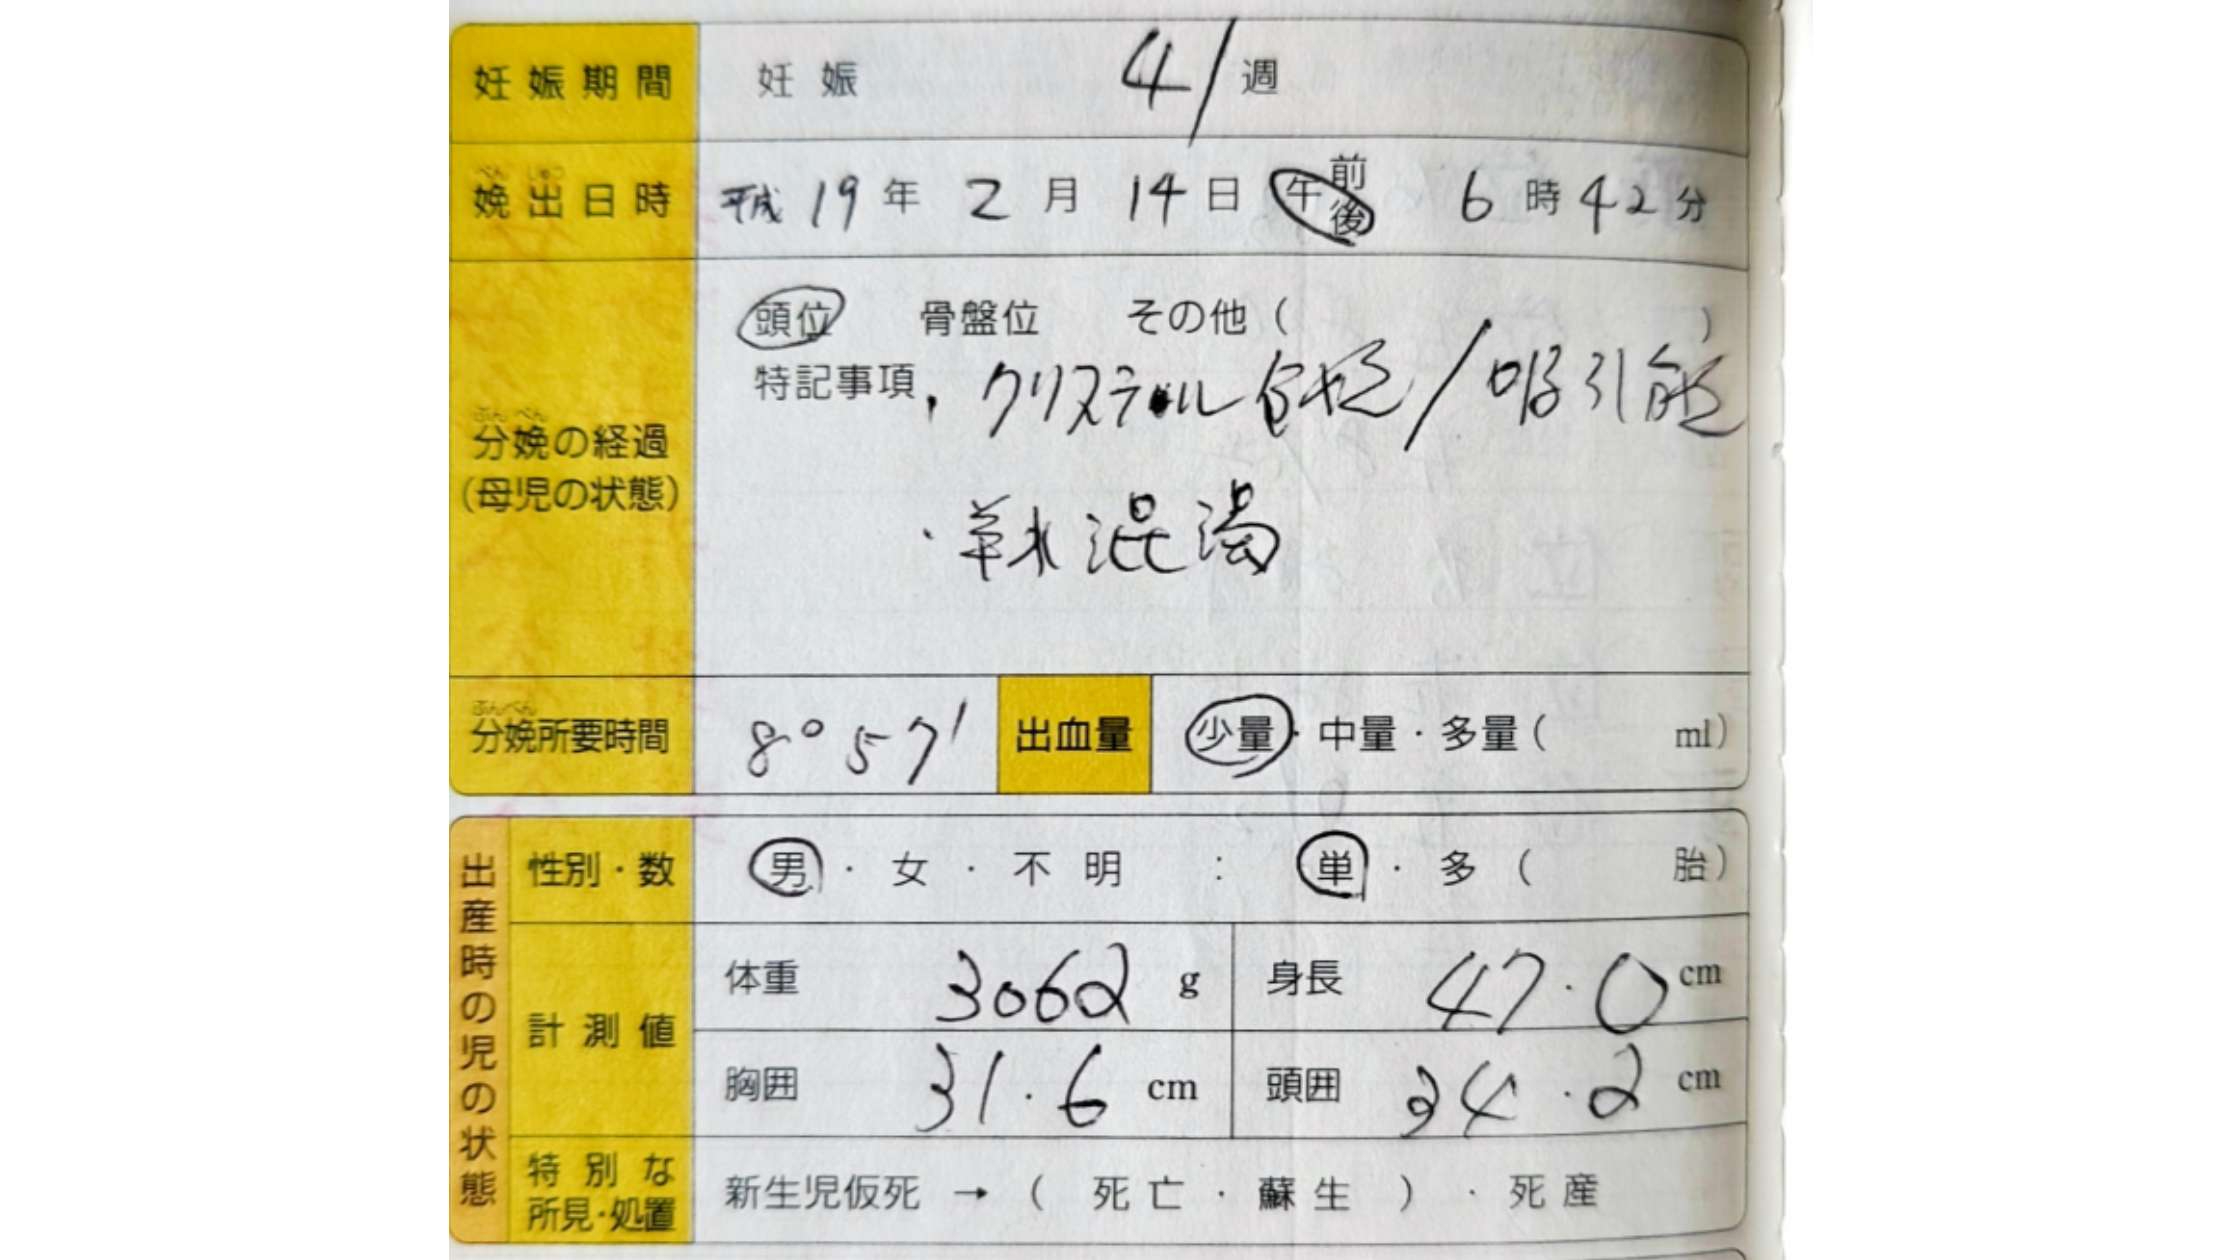 妊娠期間 妊娠 41週
ぶん しゅつ
娩出日時 平成19年 2月 14日 午 前 後 6時42分
頭位 骨盤位 その他( )
特記事項 ・クリステル / 吸引
・羊水混濁
ぶんべん
分娩の経過
(母児の状態)
ぶんべん
分娩所要時間 8°57' 出血量 少量・中量・多量( ml)
出産時の児の状態
性別・数 男・女・不明 : 単・多( 胎)
計測値 体重 3062 g 身長 47.0 cm
胸囲 31.6 cm 頭囲 34.2 cm
特別な
所見・処置 新生児仮死 → ( 死亡・蘇生 )・死産